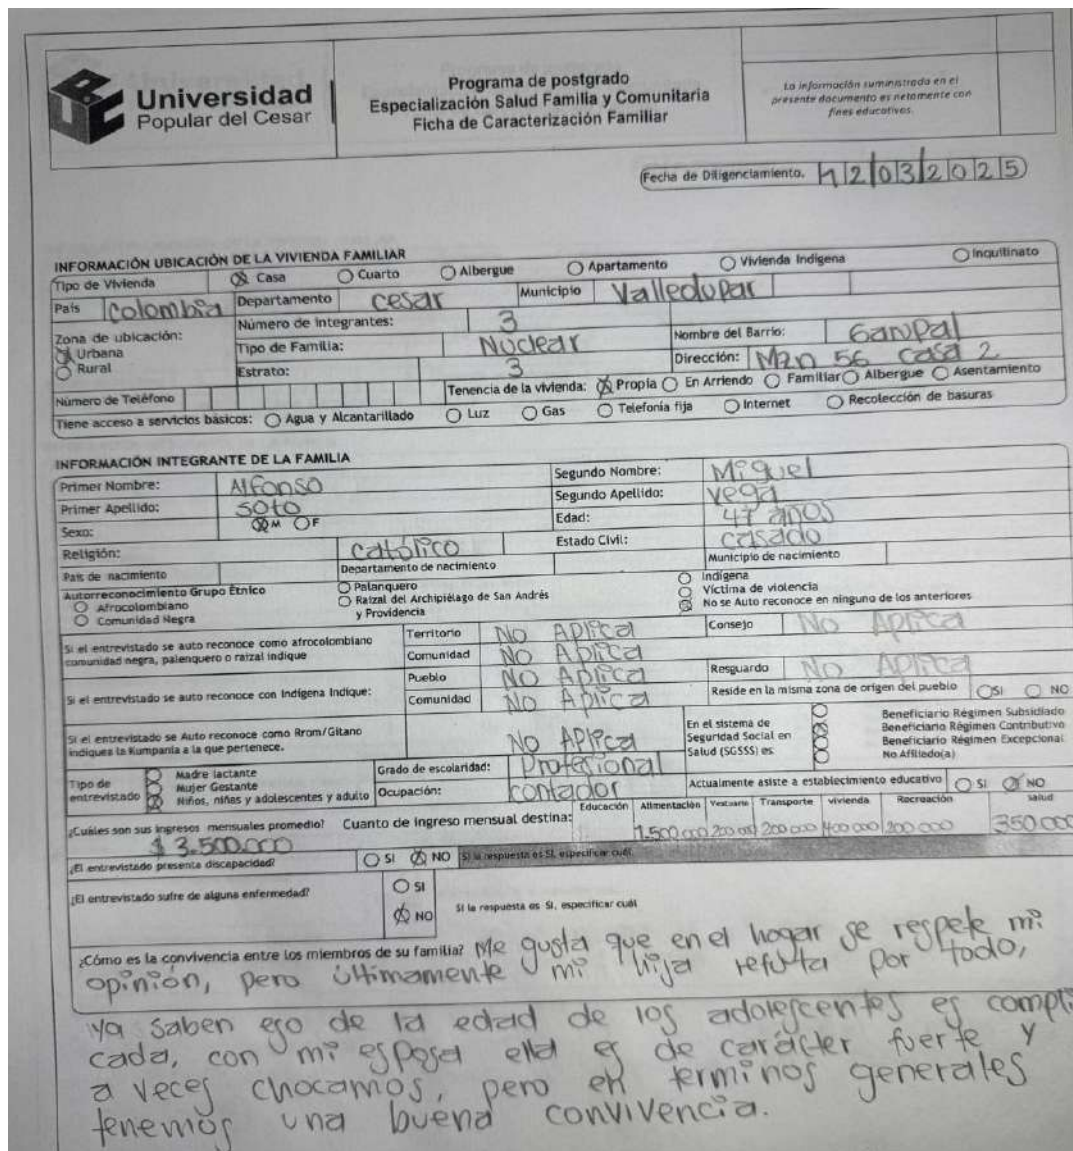 Universidad
Popular del Cesar
Programa de postgrado
Especialización Salud Familia y Comunitaria
Ficha de Caracterización Familiar
La información suministrada en el
presente documento es netamente con
fines educativos.
Fecha de Diligenciamiento. 12/03/2025
INFORMACIÓN UBICACIÓN DE LA VIVIENDA FAMILIAR
Tipo de Vivienda Casa Cuarto Albergue Apartamento Vivienda Indígena Inquilinato
País Colombia Departamento cesar Municipio Valledupar
Zona de ubicación: Número de integrantes: 3
Urbana Tipo de Familia: Nuclear Nombre del Barrio: Garupal
Rural Estrato: 3 Dirección: Mzn 56 casa 2
Número de Teléfono Tenencia de la vivienda: Propia En Arriendo Familiar Albergue Asentamiento
Tiene acceso a servicios básicos: Agua y Alcantarillado Luz Gas Telefonía fija Internet Recolección de basuras
INFORMACIÓN INTEGRANTE DE LA FAMILIA
Primer Nombre: Alfonso Segundo Nombre: Miguel
Primer Apellido: Soto Segundo Apellido: Vega
Sexo: M F Edad: 47 años
Religión: católico Estado Civil: casado
País de nacimiento Departamento de nacimiento Municipio de nacimiento
Autorreconocimiento Grupo Étnico Palanquero Indígena
Afrocolombiano Raizal del Archipiélago de San Andrés Víctima de violencia
Comunidad Negra y Providencia No se Auto reconoce en ninguno de los anteriores
Si el entrevistado se auto reconoce como afrocolombiano Territorio No Aplica Consejo No Aplica
comunidad negra, palenquero o raizal indique Comunidad No Aplica
Si el entrevistado se auto reconoce con Indígena Indique: Pueblo No Aplica Resguardo No Aplica
Comunidad No Aplica Reside en la misma zona de origen del pueblo SI NO
Si el entrevistado se Auto reconoce como Rrom/Gitano
indíques la Kumpania a la que pertenece. No Aplica
En el sistema de
Seguridad Social en
Salud (SGSSS) es
Beneficiario Régimen Subsidiado
Beneficiario Régimen Contributivo
Beneficiario Régimen Excepcional
No Afiliado(a)
Tipo de
entrevistado
Madre lactante
Mujer Gestante
Niños, niñas y adolescentes y adulto
Grado de escolaridad: Profesional
Ocupación: contador Actualmente asiste a establecimiento educativo SI NO
¿Cuáles son sus ingresos mensuales promedio? Cuanto de ingreso mensual destina: Educación Alimentación Vestuario Transporte vivienda Recreación salud
$ 3.500.000 1.500.000 200 000 200 000 400 000 200 000 350 000
¿El entrevistado presenta discapacidad? SI NO Si la respuesta es SI, especificar cuál.
¿El entrevistado sufre de alguna enfermedad? SI
NO Si la respuesta es SI, especificar cuál
¿Cómo es la convivencia entre los miembros de su familia? Me gusta que en el hogar se respete mi
opinión, pero últimamente mi hija refuta por todo,
ya saben eso de la edad de los adolescentes es compli
cada, con mi esposa ella es de carácter fuerte y
a veces chocamos, pero en terminos generales
tenemos una buena convivencia.